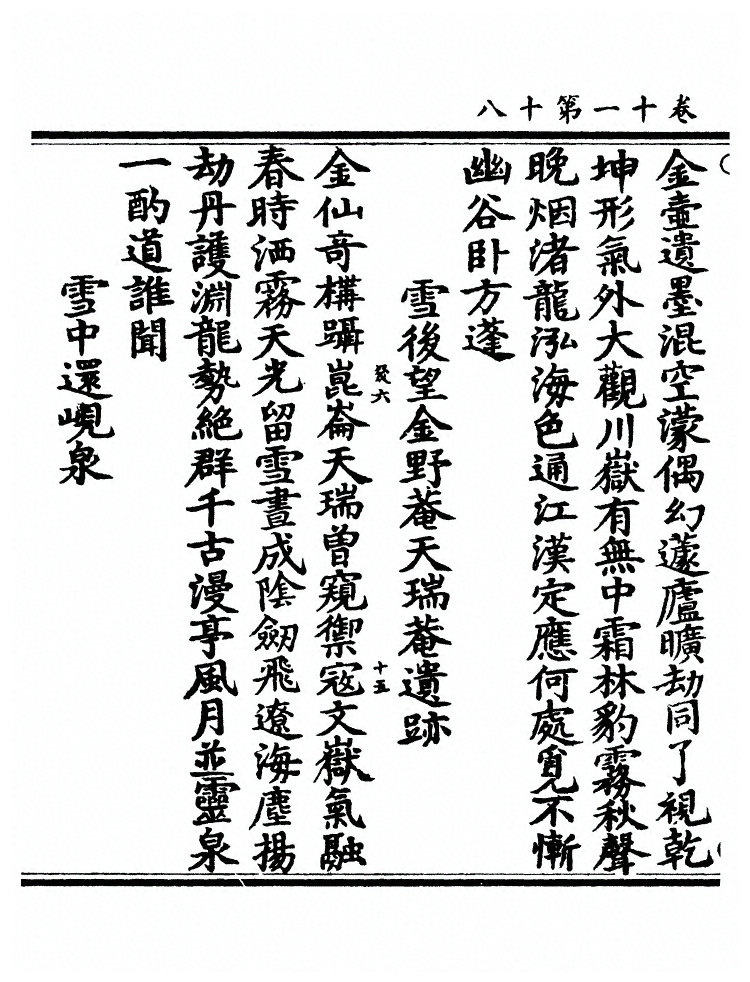 卷十一第十八
金壺遺墨混空濛偶幻蘧廬曠劫同了視乾
坤形氣外大觀川嶽有無中霜林豹霧秋聲
晚烟渚龍泓海色通江漢定應何處覓不慚
幽谷卧方蓬
雪後望金野菴天瑞菴遺跡
金仙竒構躡崑崙天瑞曾窺禦寇文嶽氣融
癹六
十五
春時洒霧天光留雪晝成陰劒飛遼海塵揚
劫丹護淵龍勢絶群千古漫亭風月並靈泉
一酌道誰聞
雪中還峴泉